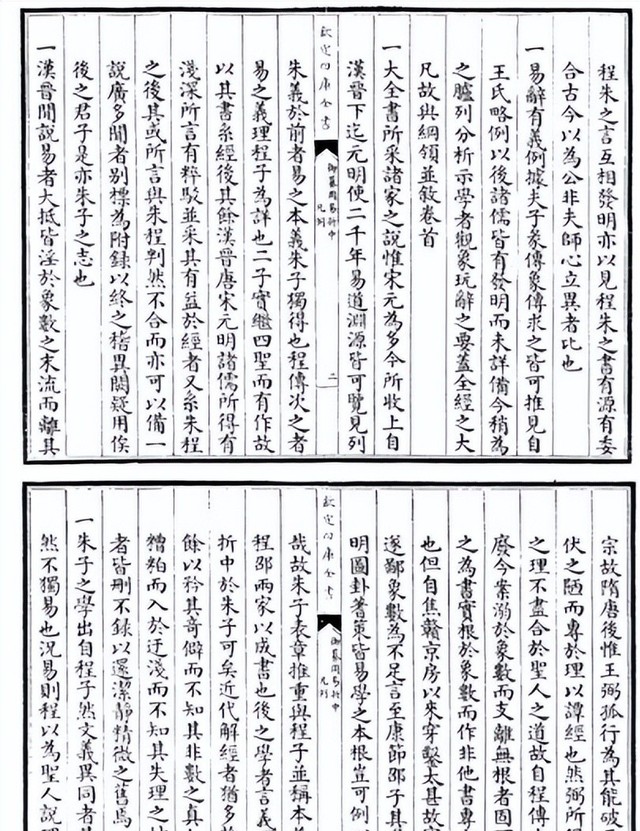 程朱之言互相發明亦以見程朱之書有源有委
合古今以為公非夫師心立異者比也
一易辭有義例據夫子彖傳象傳求之皆可推見自
王氏略例以後諸儒皆有發明而未詳備今稍為
之臚列分析示學者觀象玩辭之要蓋全經之大
凡故與綱領並敘卷首
一大全書所采諸家之說惟宋元為多今所收上自
漢晉下迄元明使二千年易道淵源皆可覽見列
欽定四庫全書
御纂周易折中
凡例
二
朱義於前者易之本義朱子獨得也程傳次之者
易之義理程子為詳也二子實繼四聖而有作故
以其書系經後其餘漢晉唐宋元明諸儒所得有
淺深所言有粹駁並采其有益於經者又系朱程
之後其或所言與朱程判然不合而亦可以備一
說廣多聞者別標為附録以終之稽異闕疑用俟
後之君子是亦朱子之志也
一漢晉間說易者大抵皆淫於象數之末流而離其
宗故隋唐後惟王弼孤行為其能破
伏之陋而專於理以譚經也然弼所
之理不盡合於聖人之道故自程傳
廢今案溺於象數而支離無根者固
之為書實根於象數而作非他書專
也但自焦贛京房以來穿鑿太甚故
遂鄙象數為不足言至康節邵子其
明圖卦蓍策皆易學之本根豈可例
欽定四庫全書
御纂周易折中
凡例
哉故朱子表章推重與程子並稱本
程邵兩家以成書也後之學者言義
折中於朱子可矣近代解經者猶多
餘以矜其奇僻而不知其非數之真
糟粕而入於迂淺而不知其失理之
者皆刪不錄以還潔靜精微之舊焉
一朱子之學出自程子然文義異同者
然不獨易也況易則程以為聖人說